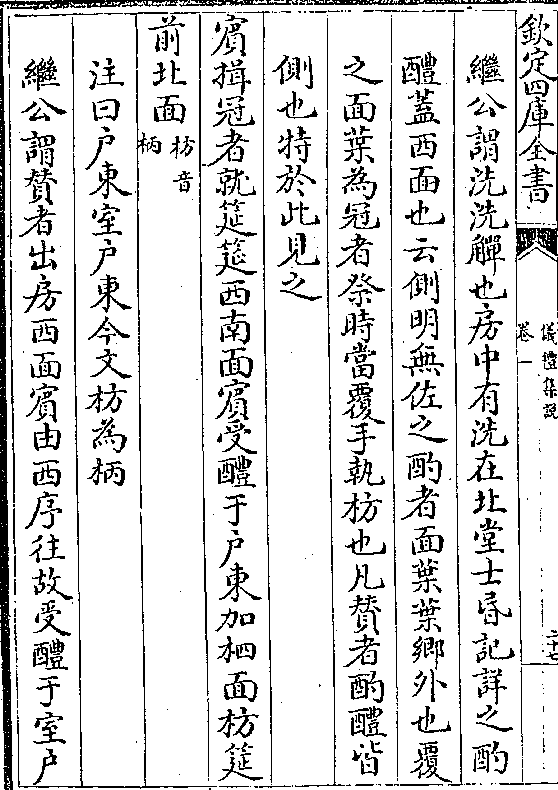 欽定四庫全書
儀禮集說
卷一
二十七
繼公謂洗洗觶也房中有洗在北堂士昏記詳之酌
醴蓋西面也云側明無佐之酌者面葉葉鄉外也覆
之面葉為冠者祭時當覆手執枋也凡賛者酌醴皆
側也特於此見之
賓揖冠者就筵筵西南面賓受醴于户東加柶面枋筵
前北面枋音柄
注曰户東室户東今文枋為柄
繼公謂賛者出房西面賓由西序往故受醴于室户